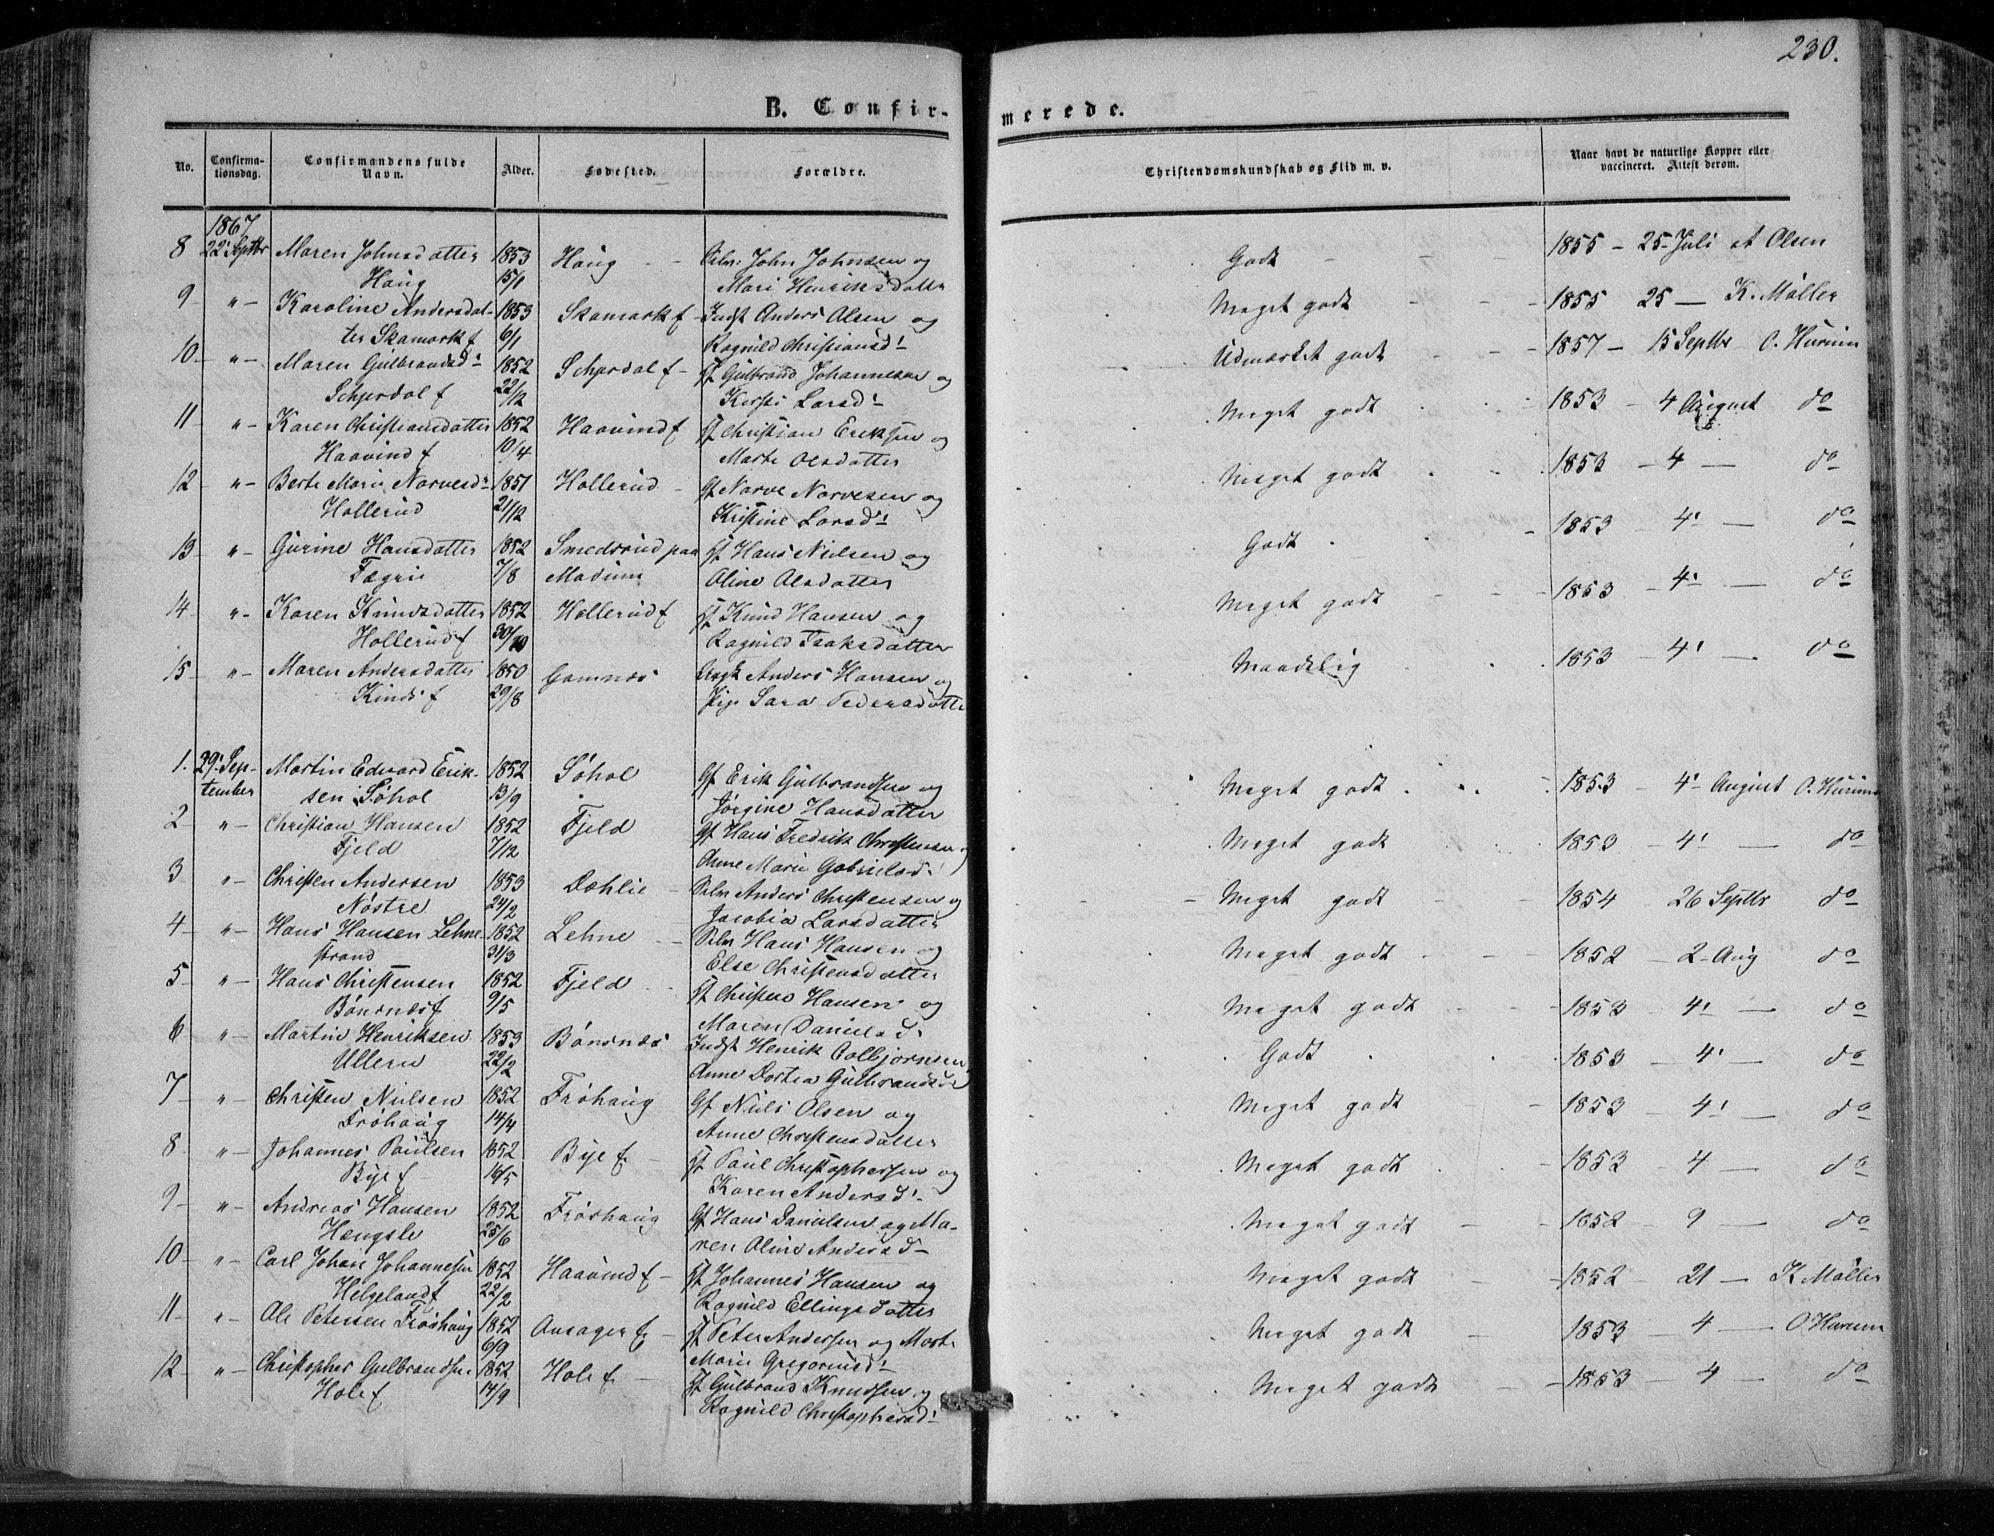 230.
B. Confirmerede.
No. Confirmationsdag. Confirmandens fulde Navn. Alder. Fødested. Forældre. Christendomskundskab og Flid m. v. Naar havt de naturlige Kopper eller vaccineret. Attest derom.
1867
8 22' Septbr Maren Johnsdatter 1853 Haug - - John Johnsen og Godt 1855 - 25 - Juli at Olsen
Haug 15/1 Mari Henriksdatter
9 - " - Karoline Andersdat- 1853 Skamark f - Indst Anders Olsen og Meget godt 1855 25 - K. Møller
ter Skamark f 6/1 Ragnild Christiansd!
10 - " - Maren Gulbrandsd! 1852 Schjerdal f - Gulbrand Johannesen og Udmærket godt 1857 - 15 Septbr O. Hurum
Schjerdal f 22/12 Kersti Larsd!
11 - " - Karen Christiansdatter 1852 Haavind f Christian Eriksen og Meget godt 1853 - 4 August do
Haavind f 10/4 Marte Olsdatter
12 - " - Berte Marie Narvesd! 1851 Hollerud - Gf Narve Narvesen og Meget godt 1853 - 4 - do
Hollerud 21/12 Kristine Larsd!
13 - " - Gurine Hansdatter 1852 Smedsrud paa Hans Nielsen og Godt 1853 - 4' - do
Fægrie 7/8 Modum Oline Olsdatter
14 - " - Karen Knudsdatter 1852 Hollerud f Knud Hansen og Meget godt 1853 - 4' - do
Hollerud f 30/10 Ragnild Isaksdatter
15 - " - Maren Andersdatter 1850 Gomnæs Anders Hansen og Maadelig 1853 - 4' - do
f 29/8 Pige Sara Pedersdatter
1. 29' Sep- Martin Edvard Erik- 1852 Søhol Gf Erik Gulbrandsen og Meget godt 1853 - 4' August O. Hurum
tember sen Søhol 13/9 Jørgine Hansdatter
2 - " - Christian Hansen 1852 Fjeld Gf Hans Fredrik Christensen og Meget godt 1853 - 4' - do
Fjeld 7/12 Anne Marie Gabrielsd!
3 " - Christen Andersen 1853 Dæhlie - Anders Christensen og Meget godt 1854 - 26 Septbr do
Nøstre 24/2 Jacobia Larsdatter
4 - " - Hans Hansen Lehne- 1852 Lehne - Hans Hansen og Meget godt 1852 - 2 - Aug do
strand 31/3 Else Christensdatter
5 " - Hans Christensen 1852 Fjeld Christen Hansen og Meget godt 1853 - 4' - do
Bønsnæs f 9/5 Maren Danielsd.
6 " - Martin Henriksen 1853 Bønsnæs Indst Henrik Colbjørnsen Godt 1853 - 4' - do
Ullern 22/2 Anne Dortea Gulbrandsd!
7 - " - Christen Nielsen 1852 Frøhaug Gf Niels Olsen og Meget godt 1853 - 4' - do
Frøhaug 14/4 Anne Christensdatter
8 " - Johannes Paulsen 1852 Bye f - Paul Christophersen og Meget godt 1853 - 4 - do
Bye f 16/5 Karen Andersd!
9 - " - Andreas Hansen 1852 Frøshaug Gf Hans Danielsen og Ma- Meget godt 1852 - 9 - do
Hængsle 25/6 ren Oline Andersd -
10 - " - Carl Johan Johannesen 1852 Haavind f - Johannes Hansen og Meget godt 1852 - 21 - K Møller
Helgeland f 22/2 Ragnild Ellingsdatter
11 - " - Ole Petersen Frøshaug 1852 Onsager f - Peter Andersen og Marte Meget godt 1853 - 4 - O. Hurum
6/9 Marie Gregoriusd!
12 - " - Christopher Gulbrandsen 1852 Hole f - Gulbrand Knudsen og Meget godt 1853 - 4 - do
Hole f 14/9 Ragnild Christophersd!